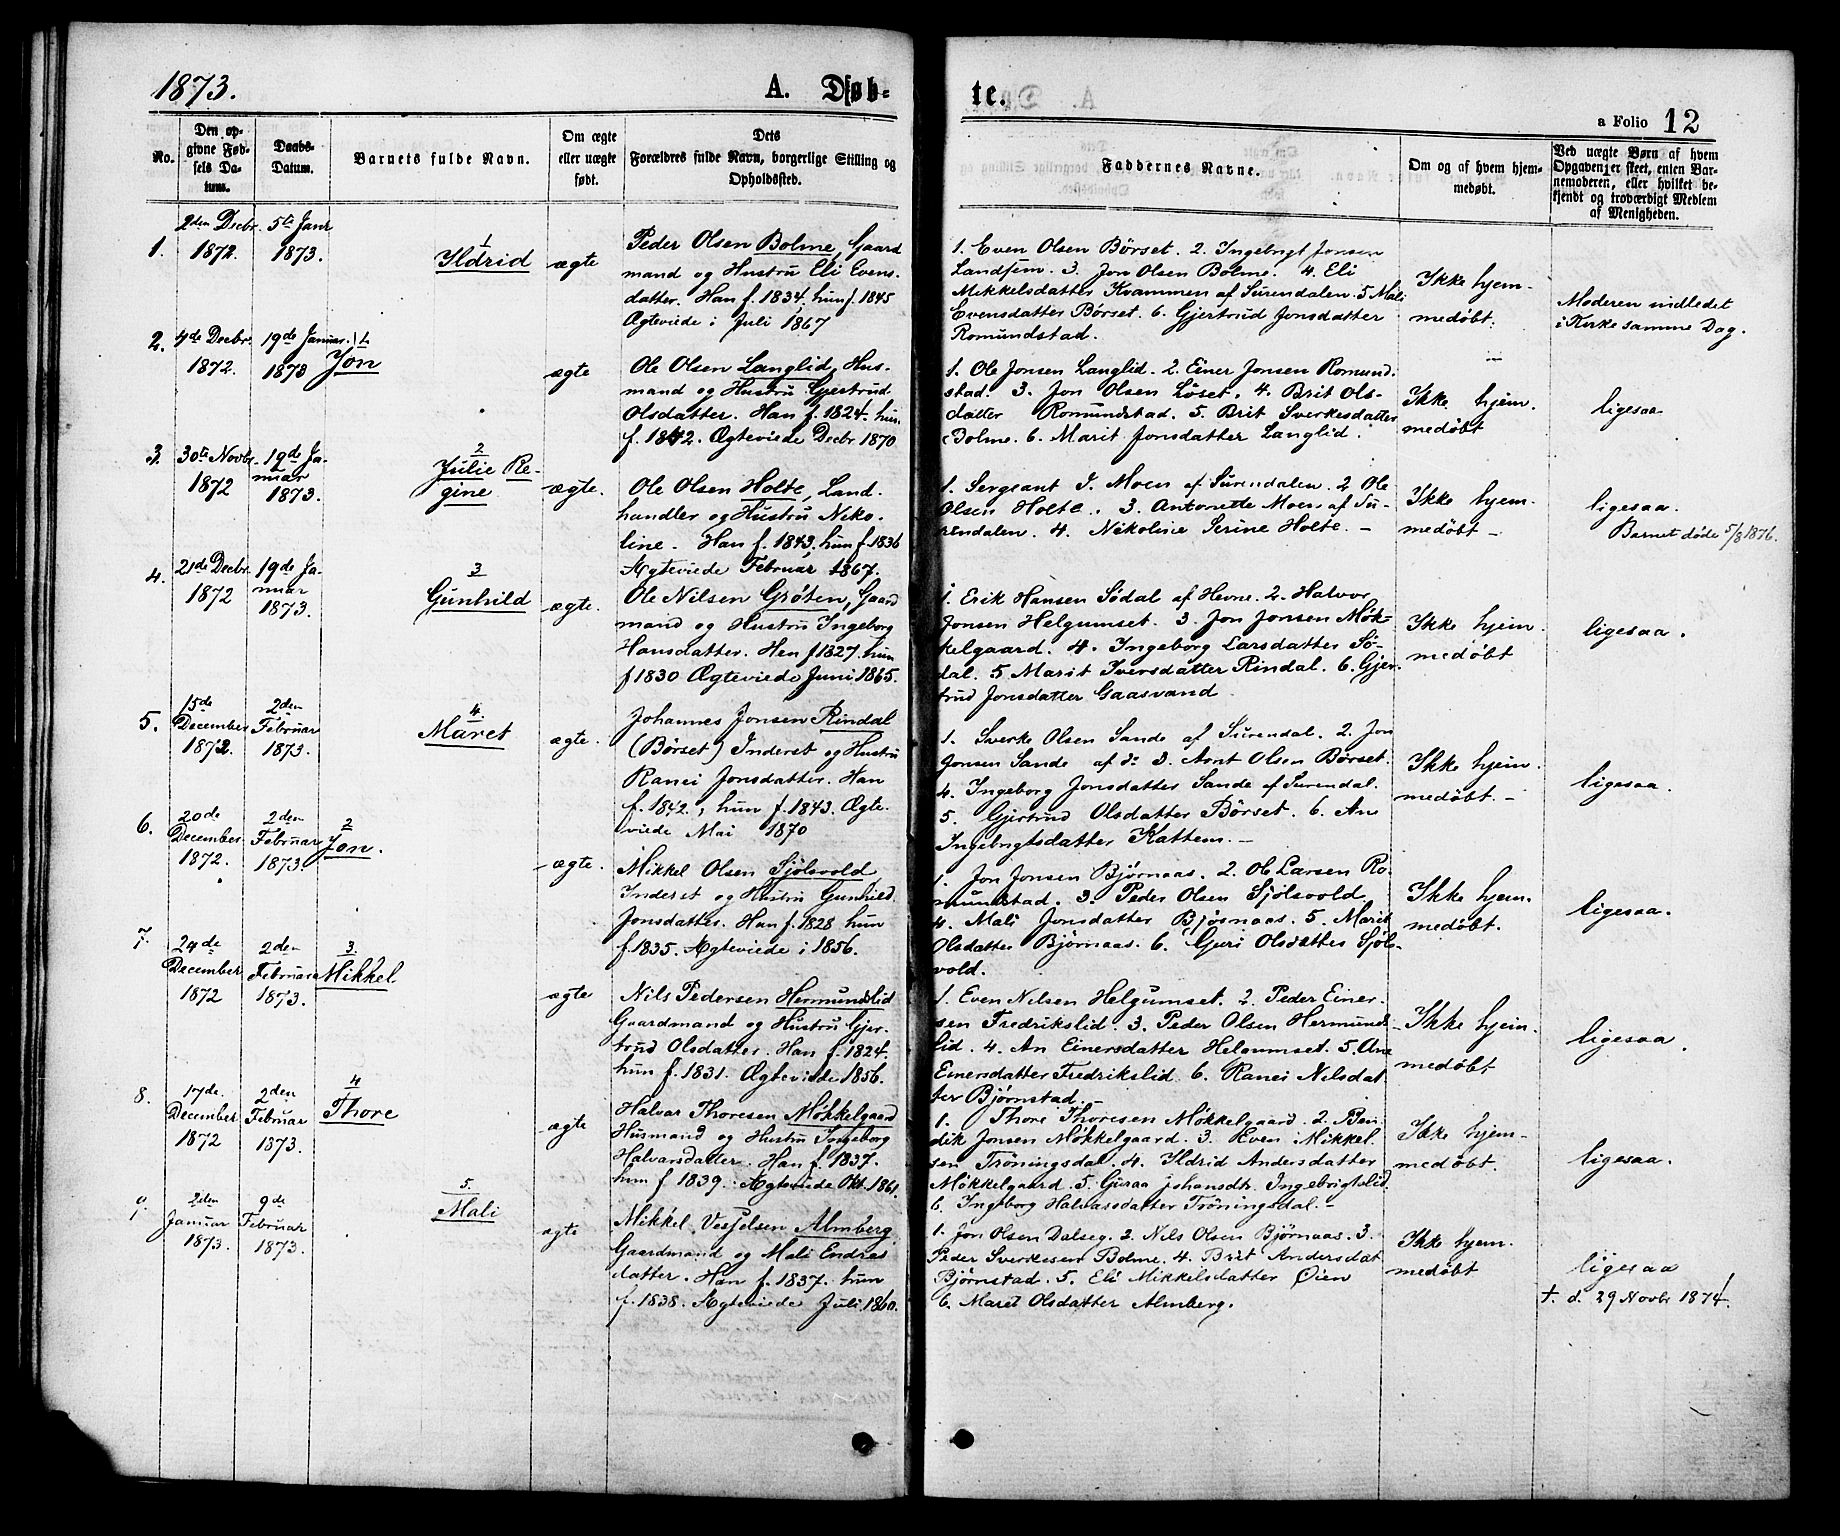 1873.
A. Døb-
te.
a Folio 12
No.
Den op-
givne Fød-
sels Da-
tum.
Daabs-
Datum.
Barnets fulde Navn.
Om ægte
eller uægte
født.
Dets
Forældres fulde Navn, borgerlige Stilling og
Opholdssted.
Faddernes Navne.
Om og af hvem hjem-
medøbt.
Ved uægte Børn af hvem
Opgaven er skeet, enten Bar-
nemoderen, eller hvilket be-
kjendt og troværdigt Medlem
af Menigheden.
1.
2den Decbr.
1872.
5te Janr
1873.
1
Ildrid
ægte
Peder Olsen Bolme, Gaard
mand og Hustru Eli Evens-
datter. Han f. 1834, hun f. 1845
Ægteviede i Juli 1867
1. Even Olsen Børset. 2. Ingebrigt Jonsen
Landsem. 3. Jon Olsen Bolme. 4. Eli
Mikkelsdatter Kvammen af Surendalen. 5 Mali
Evensdatter Børset. 6. Gjertrud Jonsdatter
Romundstad.
Ikke hjem-
medøbt.
Moderen indledet
i Kirke samme Dag.
2.
4de Decbr.
1872.
19de Januar.
1873
1
Jon
ægte
Ole Olsen Langlid, Hus-
mand og Hustru Gjertrud
Olsdatter. Han f. 1824. hun
f. 1842. Ægteviede Decbr 1870
1. Ole Jonsen Langlid. 2. Einer Jonsen Romund-
stad. 3. Jon Olsen Løset. 4. Brit Ols-
datter Romundstad. 5. Brit Sverkesdatter
Bolme. 6. Marit Jonsdatter Langlid.
Ikke hjem-
medøbt
ligesaa
3.
30te Novbr.
1872
19de Ja-
nuar
1873.
2
Julie Re-
gine
ægte.
Ole Olsen Holte, Land-
handler og Hustru Niko-
line. Han f. 1843, hun f. 1836
Ægteviede Februar 1867.
1. Sergeant I. Moen af Surendalen. 2 Ole
Olsen Holte. 3. Antonette Moen af Su-
rendalen. 4. Nikoline Serine Holte. —
Ikke hjem-
medøbt —
ligesaa.
Barnet døde 5/8 1876.
4.
21de Decbr.
1872
19de Ja-
nuar
1873.
3
Gunhild
ægte.
Ole Nilsen Grøten, Gaard
mand og Hustru Ingeborg
Hansdatter. Han f 1827. hun
f 1830 Ægteviede Juni 1865.
1. Erik Hansen Södal af Hevne. 2. Halvor
Jonsen Helgumset. 3. Jon Jonsen Møk-
kelgaard. 4. Ingeborg Larsdatter Sö-
dal. 5 Marit Iversdatter Rindal. 6. Gjer-
trud Jonsdatter Gaasvand.
Ikke hjem-
medøbt
ligesaa.
5.
15de
December
1872.
2den
Februar
1873.
4.
Maret
ægte.
Johannes Jonsen Rindal
(Børset) Inderst og Hustru
Ranei Jonsdatter. Han
f. 1842., hun f. 1843. Ægte-
viede Mai 1870
1. Sverke Olsen Sande af Surendal. 2. Jon
Jonsen Sande af do 3. Arnt Olsen Børset.
4. Ingeborg Jonsdatter Sande af Surendal.
5. Gjertrud Olsdatter Børset. 6. An
Ingebrigtsdatter Kattem. —
Ikke hjem-
medøbt. —
ligesaa.
6.
20de
December
1872.
2den
Februar
1873.
2
Jon.
ægte.
Mikkel Olsen Sjölsvold,
Inderst og Hustru Gunhild
Jonsdatter. Han f. 1828 hun
f. 1835. Ægteviede i 1856.
1. Jon Jonsen Bjørnaas. 2. Ol Larsen Ro-
mundstad. 3. Peder Olsen Sjölsvold.
4. Mali Jonsdatter Bjørnaas. 5. Marit
Olsdatter Bjørnaas. 6. Guri Olsdatter Sjöls-
vold.
Ikke hjem-
medøbt.
ligesaa.
7.
24de
December
1872
2den
Februar
1873.
3.
Mikkel
ægte
Nils Pedersen Hermundslid
Gaardmand og Hustru Gjer-
trud Olsdatter. Han f. 1824.
hun f. 1831. Ægteviede 1856.
1. Even Nilsen Helgumset. 2. Peder Einer-
sen Fredrikslid. 3. Peder Olsen Hermunds-
lid. 4. An Einersdatter Helgumset. 5. Ane
Einersdatter Fredrikslid. 6. Ranei Nilsdat-
ter Bjørnstad. —
Ikke hjem-
medøbt
ligesaa.
8.
17de
December
1872
2den
Februar
1873.
4
Thore
ægte
Halvar Thoresen Møkkelgaard
Husmand og Hustru Ingeborg
Halvarsdatter. Han f. 1837.
hun f 1839. Ægteviede Okt. 1861.
1. Thore Thoresen Møkkelgaard. 2. Ben-
dik Jonsen Møkkelgaard. 3. Even Mikkel-
sen Tröningsdal. 4. Ildrid Andersdatter
Møkkelgaard. 5. Guraa Johansdt. Ingebrigtslid
6. Ingeborg Halvarsdatter Tröningsdal. —
Ikke hjem-
medøbt.
ligesaa.
9.
2den
Januar
1873.
9de
Februar
1873.
5.
Mali
ægte
Mikkel Vesselsen Almberg
Gaardmand og Mali Endres
datter. Han f. 1837. hun
f. 1838. Ægteviede Juli 1860.
1. Jon Olsen Dalseg. 2. Nils Olsen Bjørnaas. 3.
Peder Sverkesen Bolme. 4. Brit Andersdat.
Bjørnstad. 5. Eli Mikkelsdatter Øien
6. Maret Olsdatter Almberg.
Ikke hjem-
medøbt
ligesaa
†. d. 29 Novbr 1874.